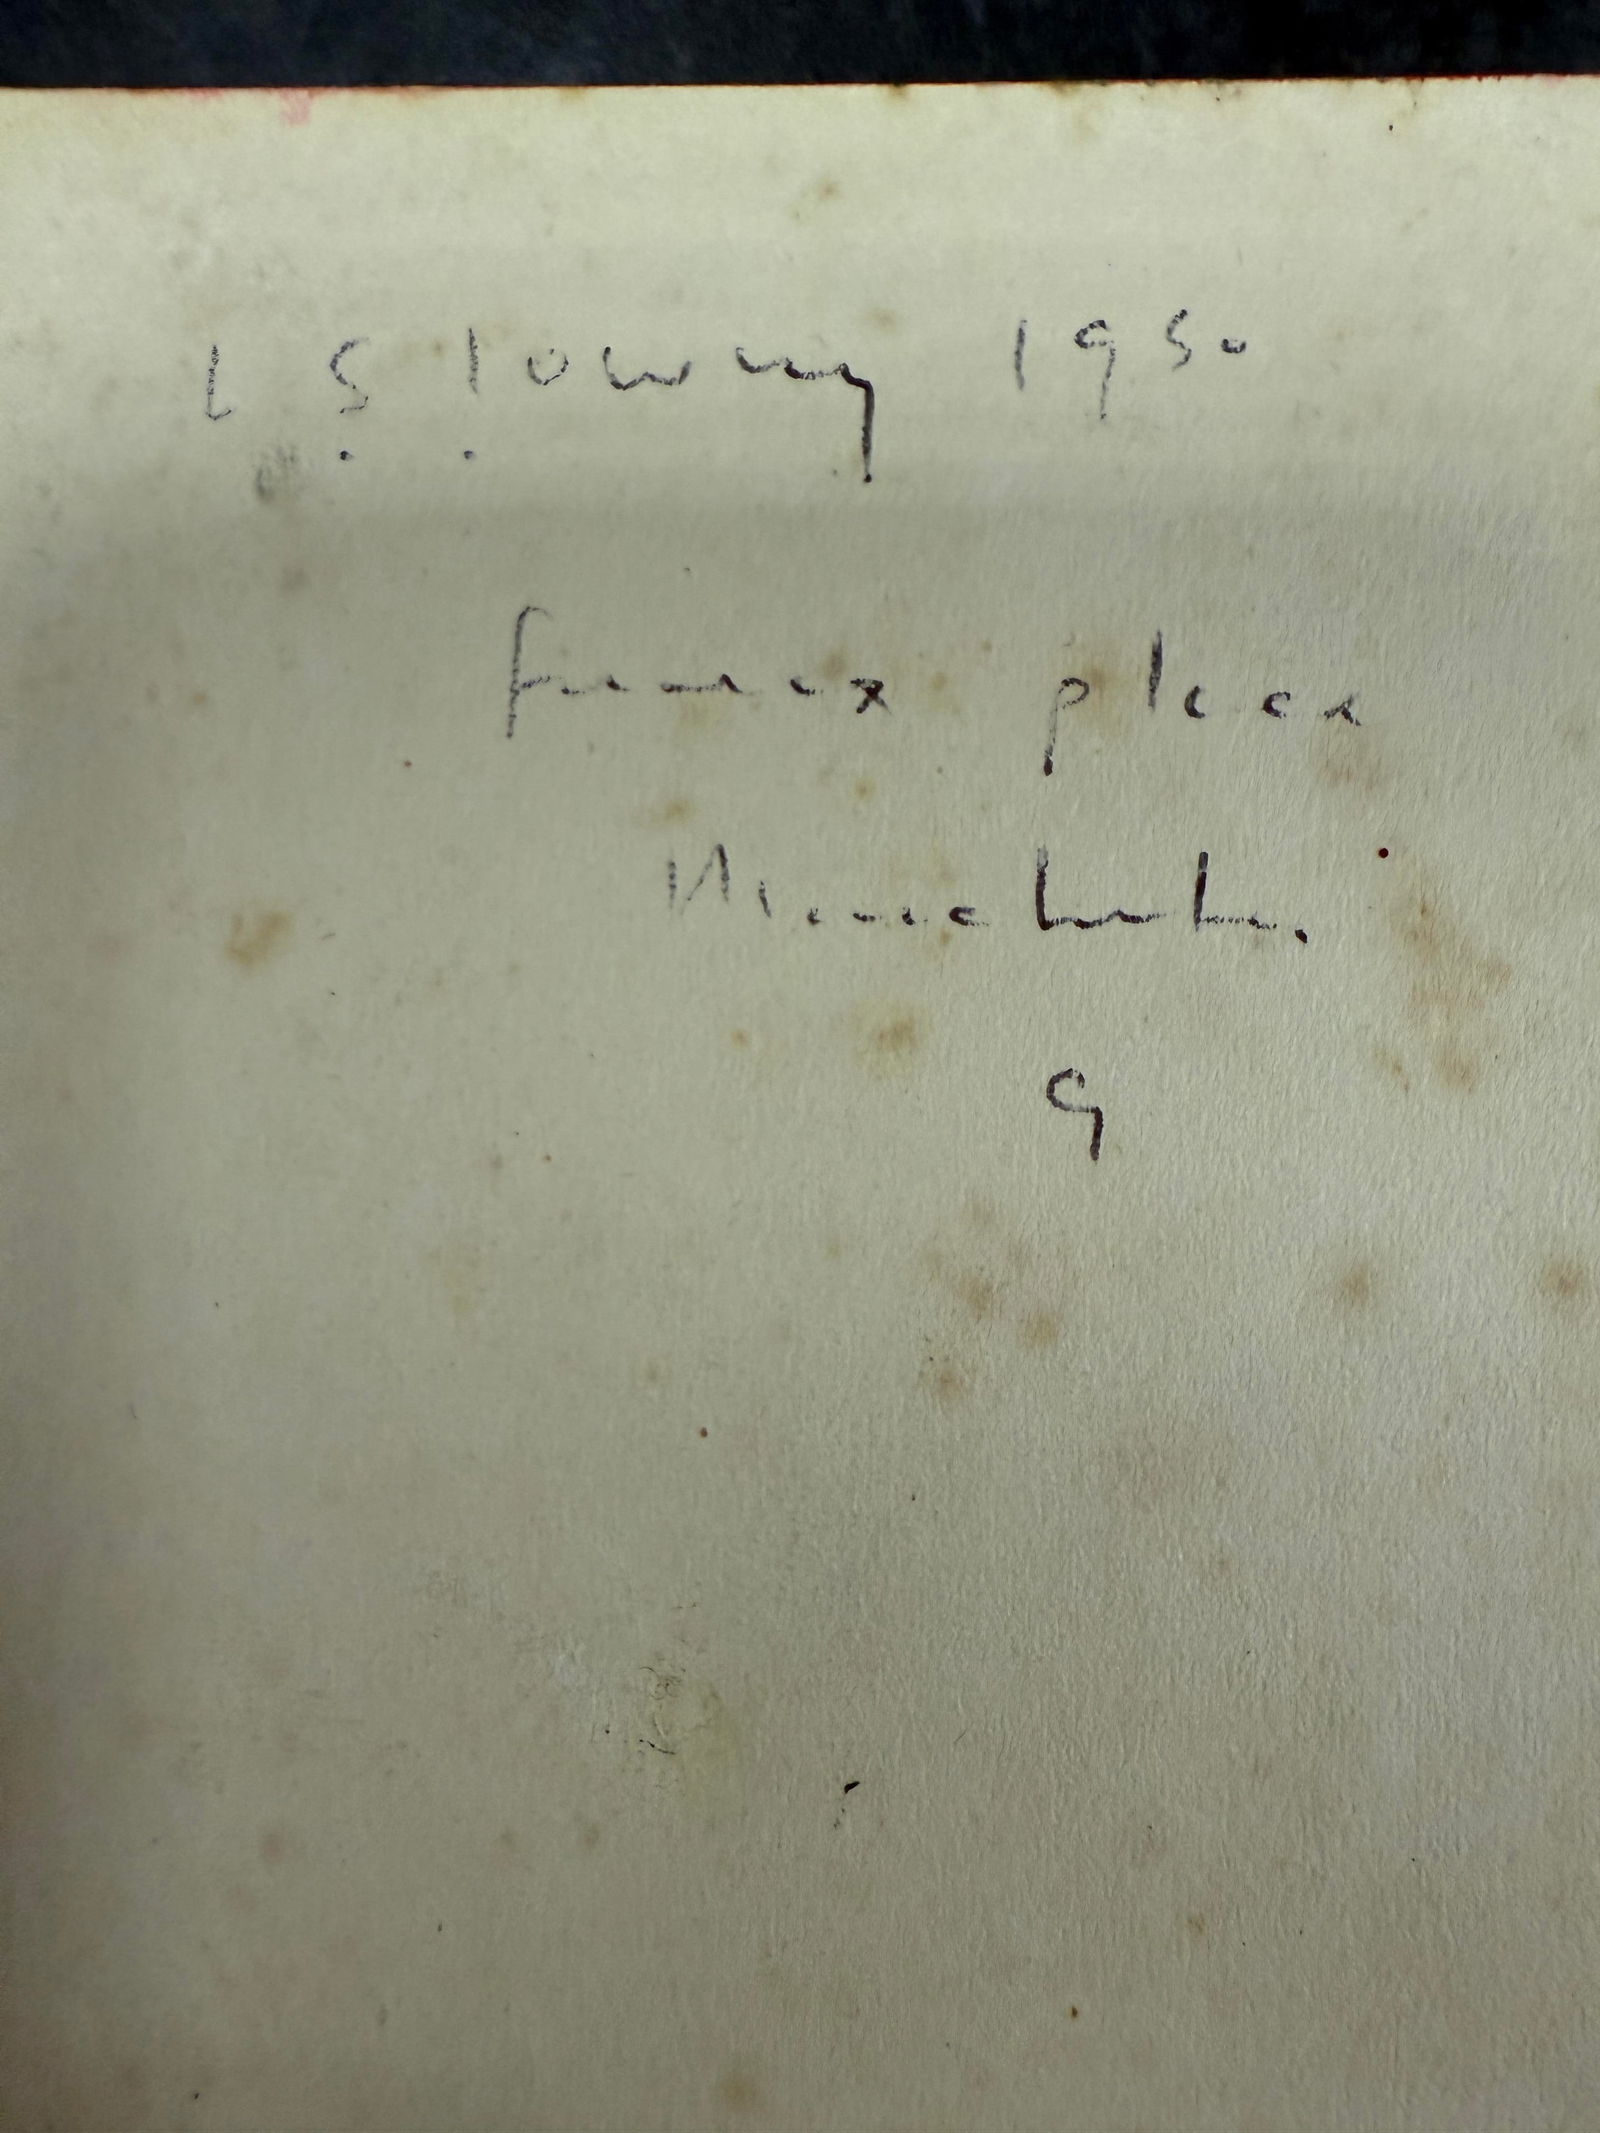 L S lowry 1950
place
Manchester.
9